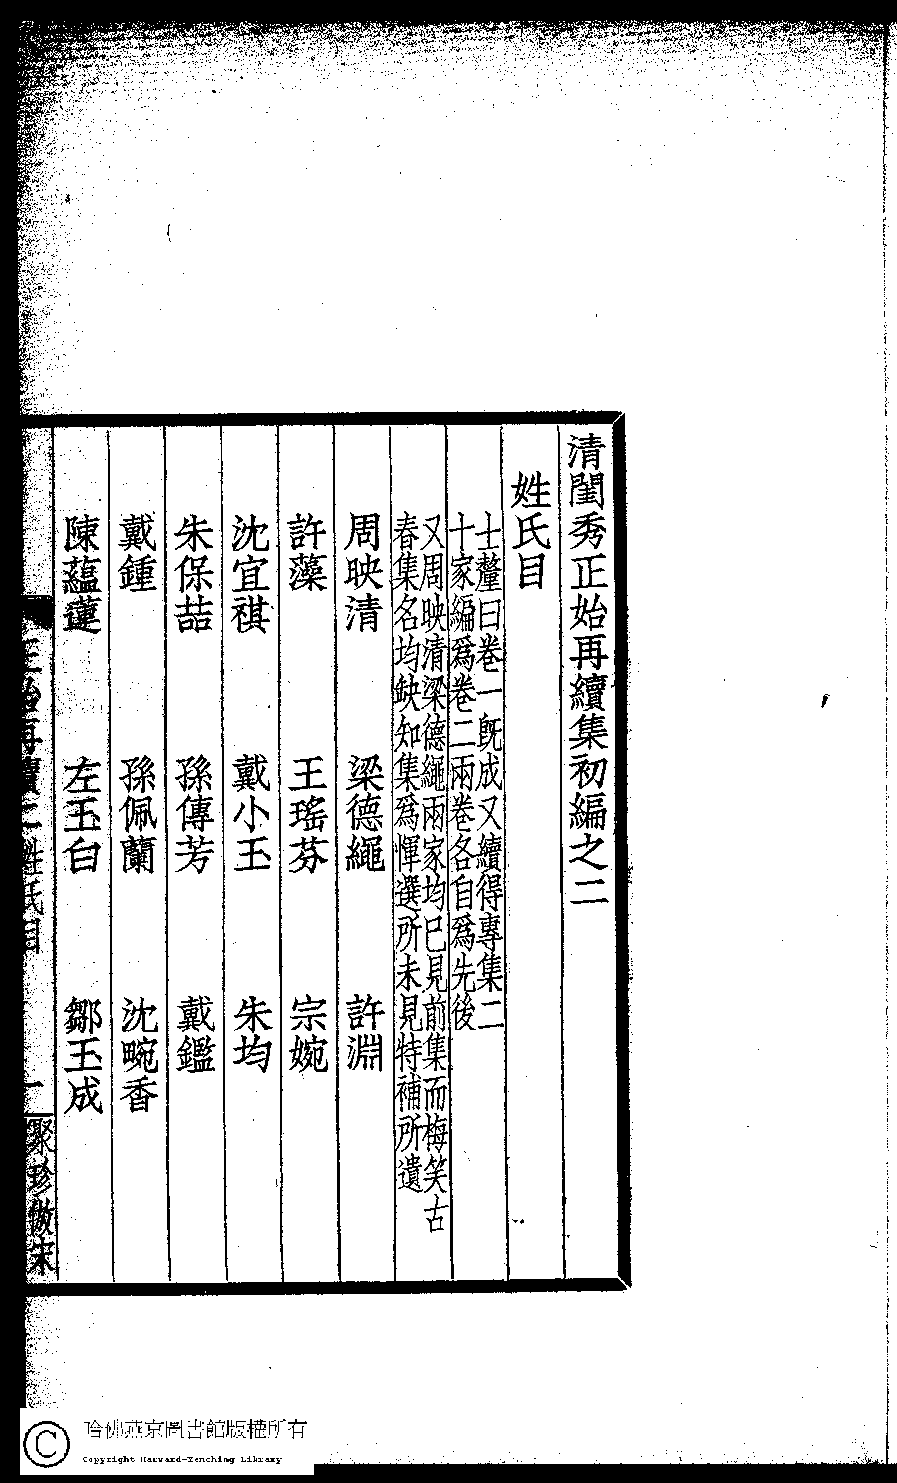 清閨秀正始再續集初編之二
姓氏目
士釐曰卷一既成又續得專集二
十家編爲卷二兩卷各自爲先後
又周映清梁德繩兩家均已見前集而梅笑古
春集名均缺知集爲惲選所未見特補所遺
周映清　梁德繩　許淵
許藻　王瑤芬　宗婉
沈宜祺　戴小玉　朱均
朱保喆　孫傳芳　戴鑑
戴鍾　孫佩蘭　沈畹香
陳蘊蓮　左玉白　鄒玉成
正始再續二姓氏目
一
聚珍倣宋
哈佛燕京圖書館版權所有
Copyright Harvard-Yenching Library